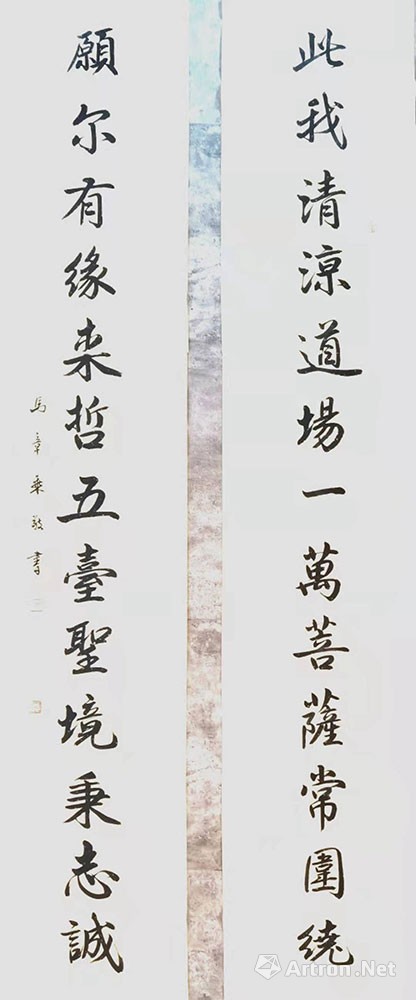 此我清涼道場一萬菩薩常圍繞
願尔有緣来哲五臺聖境秉志誠
馬章乘敬書
Artron.Net